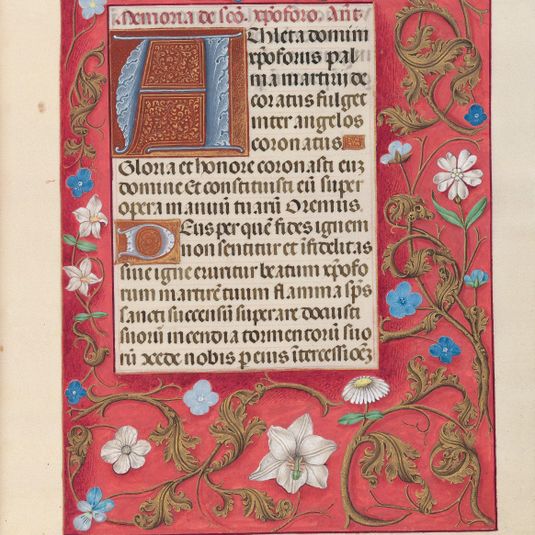 Memoria de sco xpoforo. Ant
AThleta domini
xpoforus pal
ma martirii de
coratus fulget
inter angelos
coronatus
Gloria et honore coronasti euz
domine Et constituisti eū super
opera manuū tuarū Oremus.
DEus per quē fides ignem
non sentitur et ifidelitas
sine igne eruntur beatum xpofo
rum martirē tuum flamma sps
sancti succensū superare docuisti
suorū incendia tormentorū suo
rū xcede nobis p eius ītercessiōēz